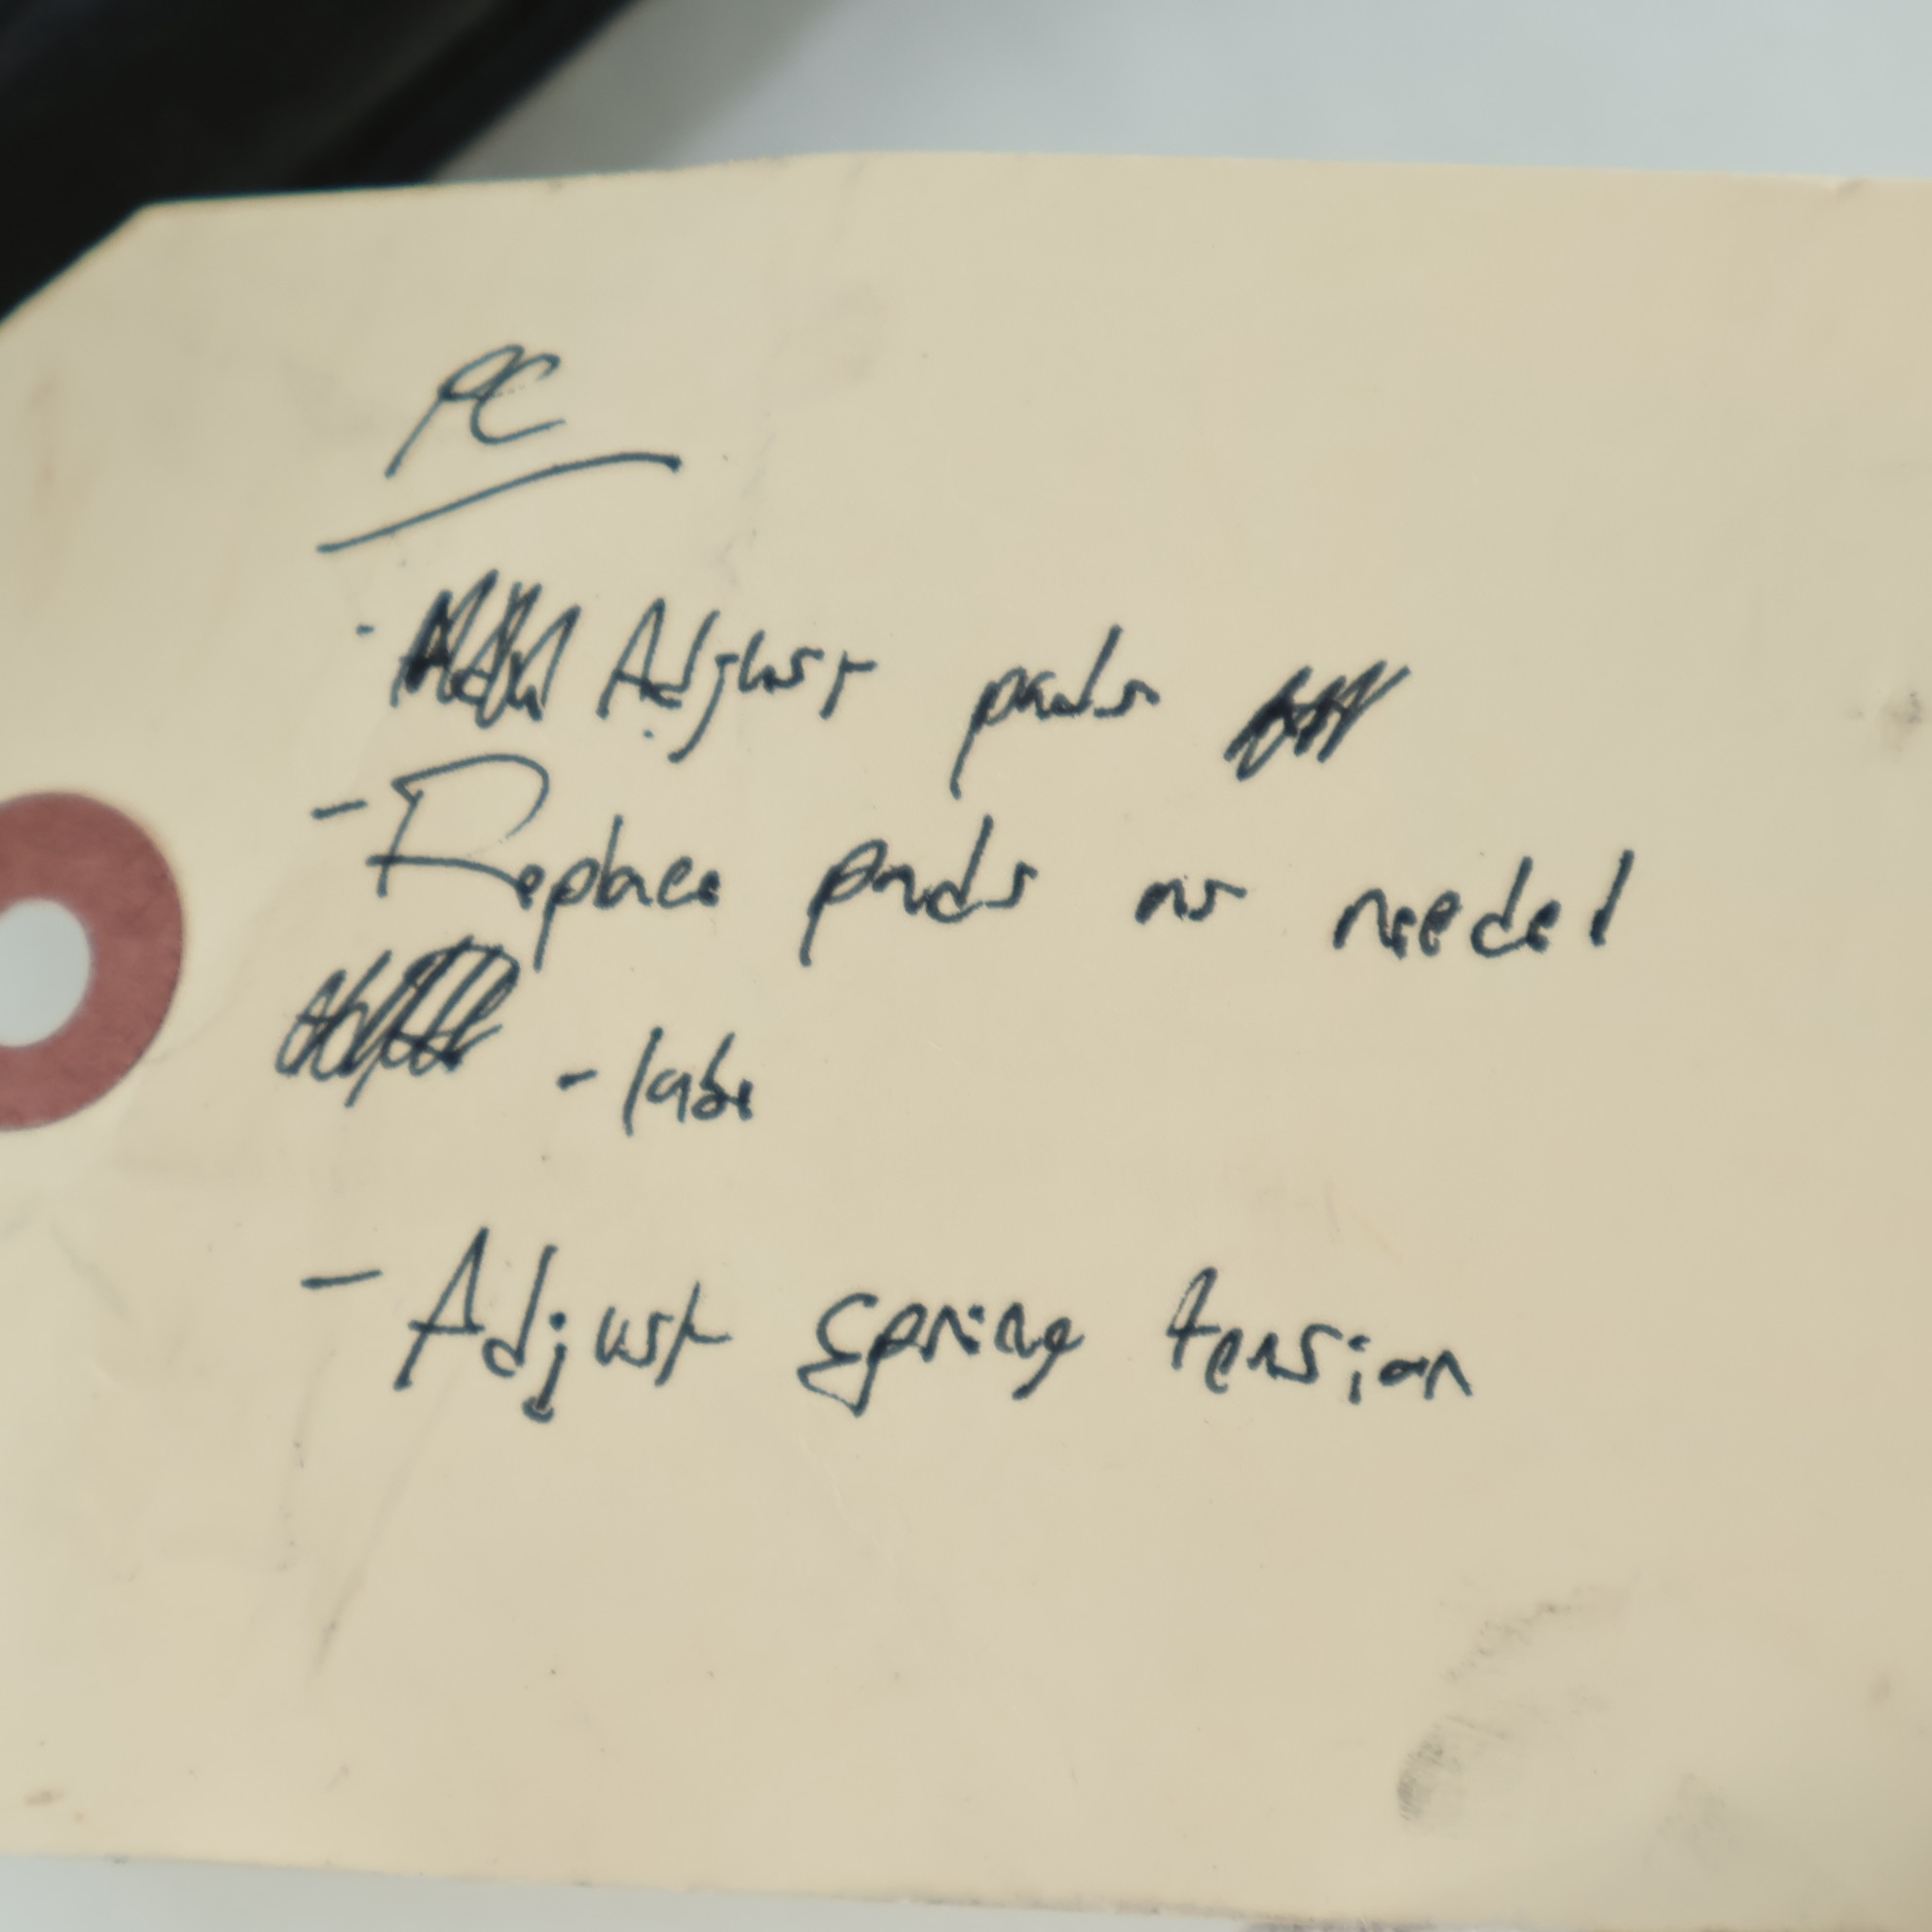 PC
- Adjust pads
- Replace pads as needed
- lube
- Adjust spring tension